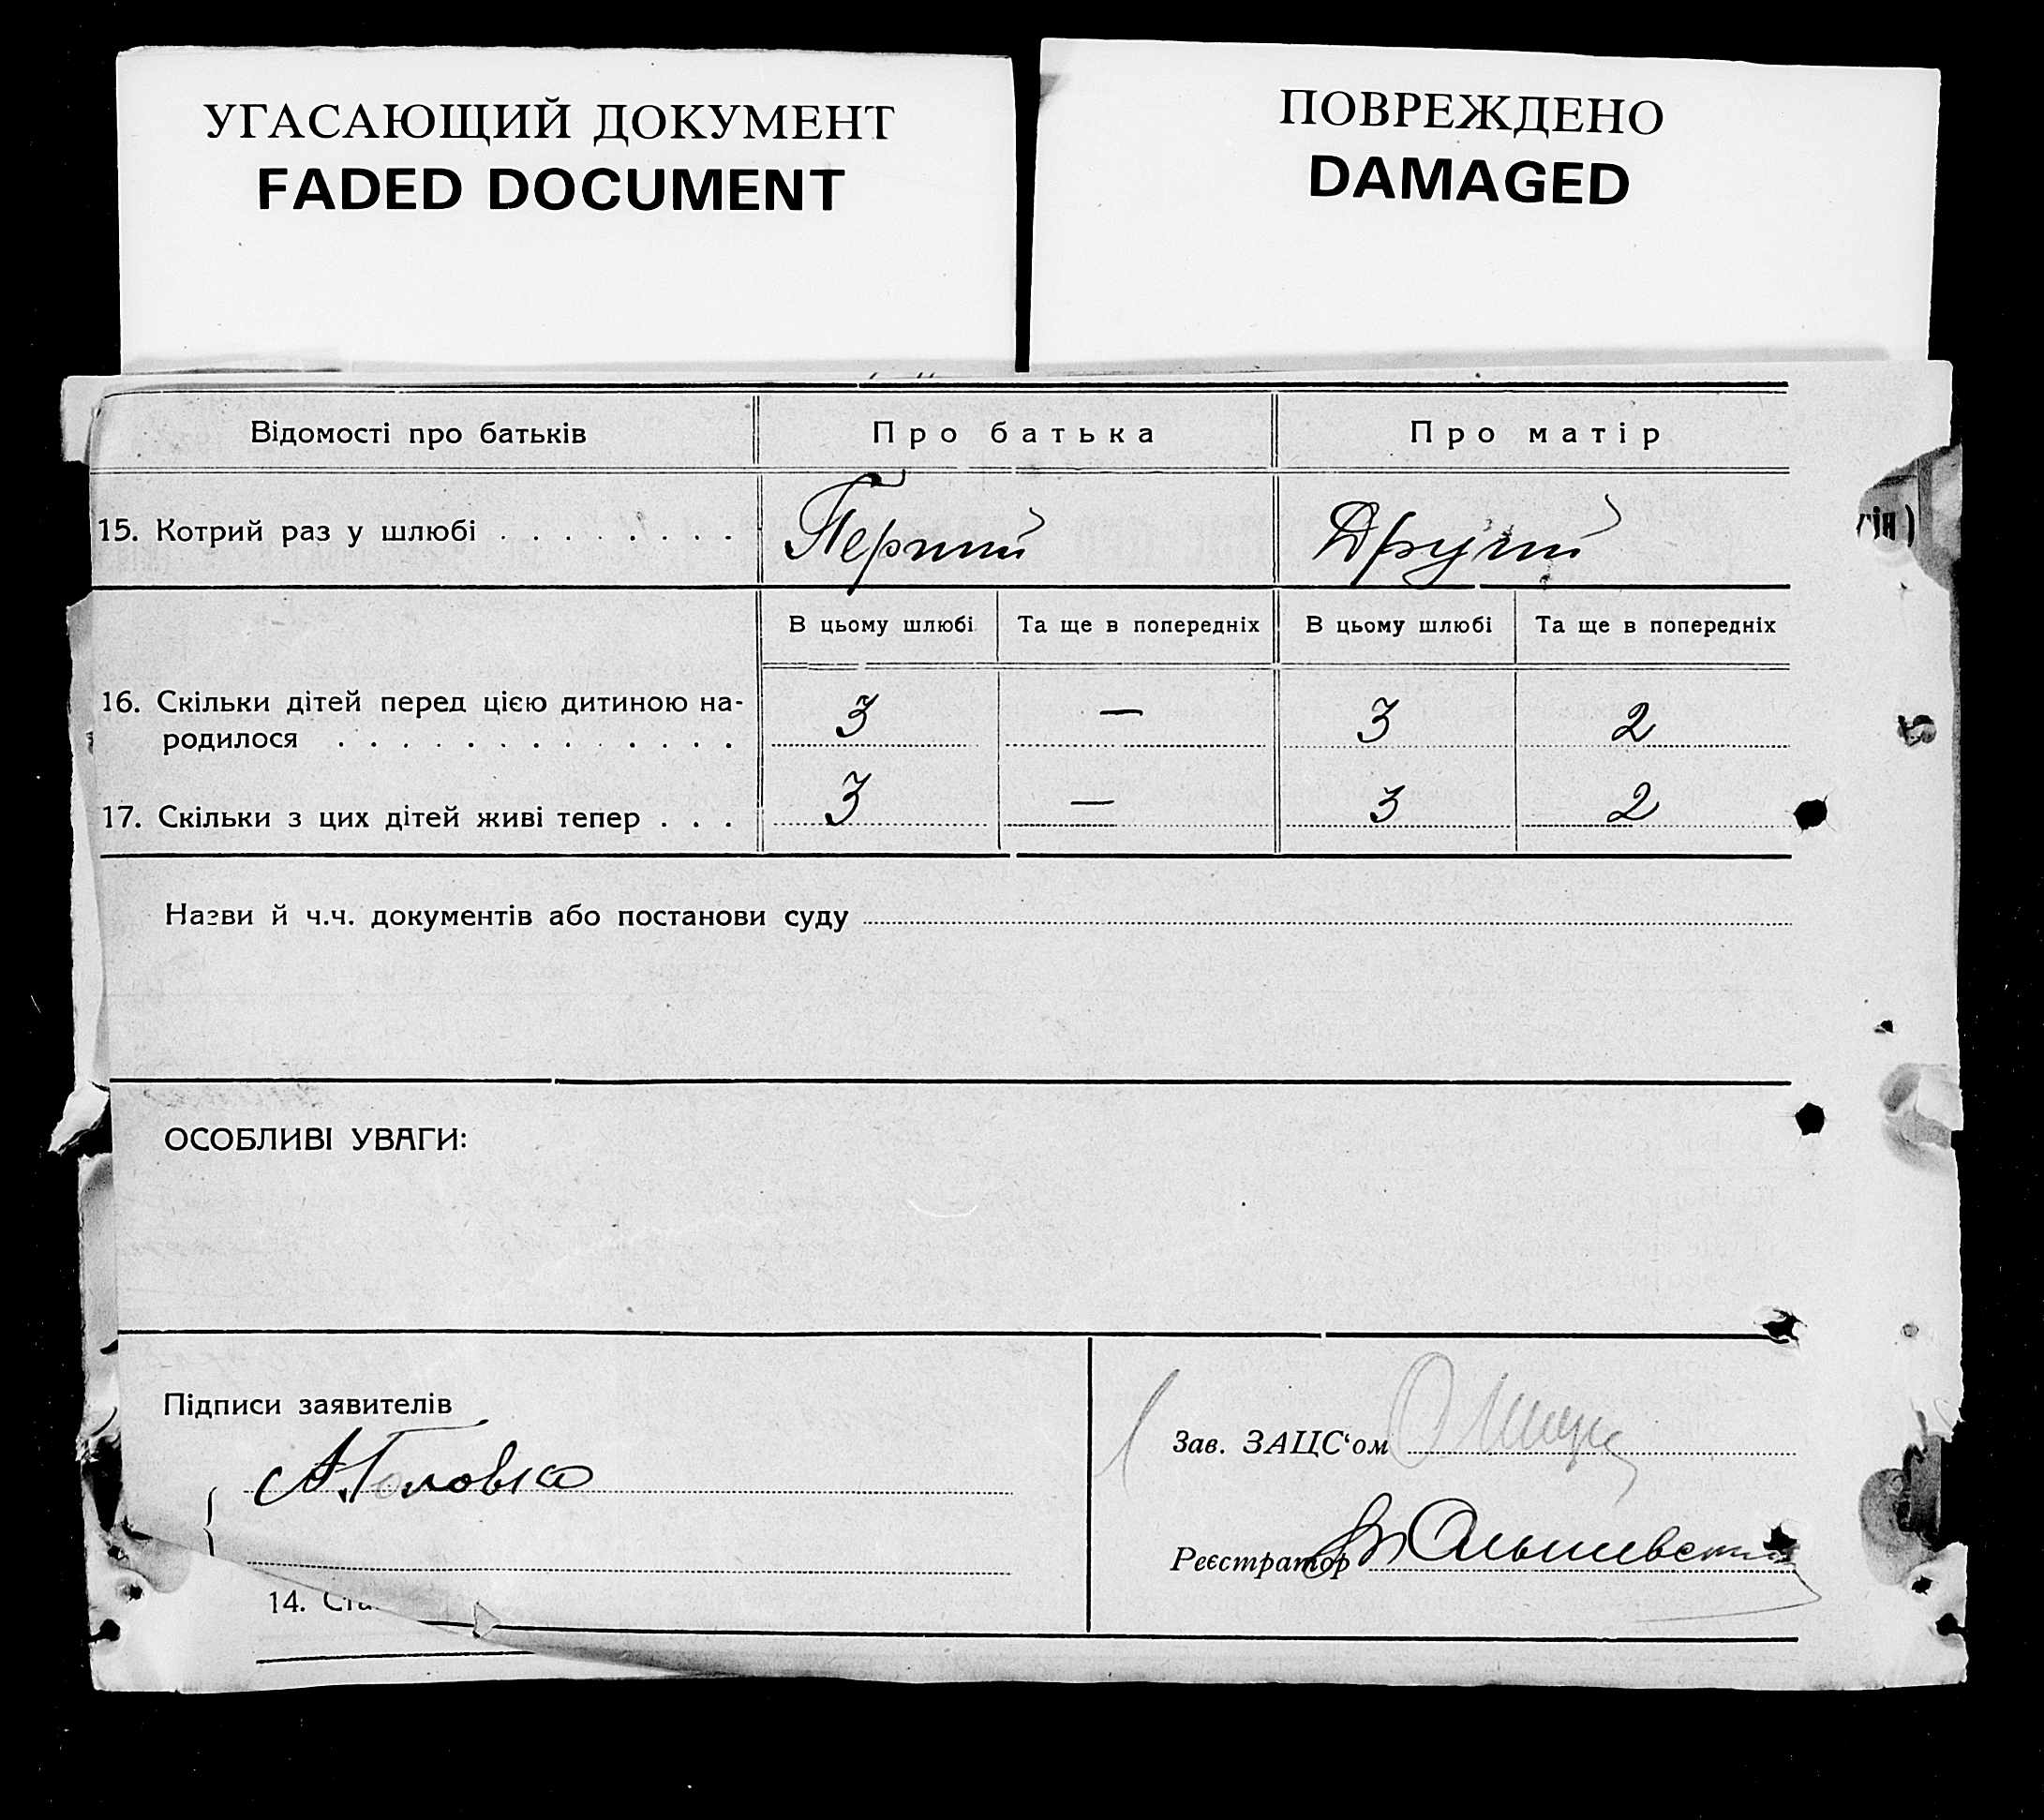 УГАСАЮЩИЙ ДОКУМЕНТ
FADED DOCUMENT
ПОВРЕЖДЕНО
DAMAGED
Відомості про батьків Про батька Про матір
15. Котрий раз у шлюбі . . . . . . . . Перший Другий
В цьому шлюбі Та ще в попередніх В цьому шлюбі Та ще в попередніх
16. Скільки дітей перед цією дитиною на-
родилося . . . . . . . . . . . . . 3 — 3 2
17. Скільки з цих дітей живі тепер . . . 3 — 3 2
Назви й ч.ч. документів або постанови суду
ОСОБЛИВІ УВАГИ:
Підписи заявителів
А. Головко
Зав. ЗАЦС‘ом
Реєстратор Ольшевский
14.